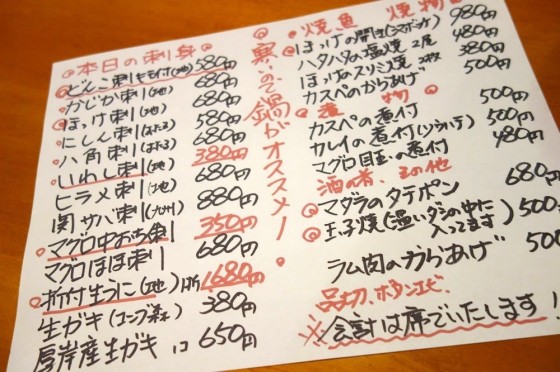 本日の刺身
どんこ刺キモ付(地) 580円
かじか刺(地) 680円
ほっけ刺(地) 680円
にしん刺(ほれる) 580円
八角刺(ほれる) 680円
いわし刺(地) 380円
ヒラメ刺(地) 680円
関サバ刺(九州) 880円
マグロ中おち刺 350円
マグロほほ刺 680円
折付生うに(地) 1680円
生ガキ 380円
厚岸産生ガキ 1コ 650円
寒いので鍋がオススメ!
焼魚 焼物
ほっけの開き 980円
ハタハタの塩焼 2尾 480円
ほっけのスリミ焼 2枚 380円
カスペのからあげ 500円
煮物
カスペの煮付 500円
カレイの煮付 500円
マグロ目玉の煮付 480円
酒の肴、その他
マダラのタチポン 680円
玉子焼(温いダシの中に入ってます) 500円
ラム肉のからあげ 500
品切、ボタンエビ
※会計は席でいたします!